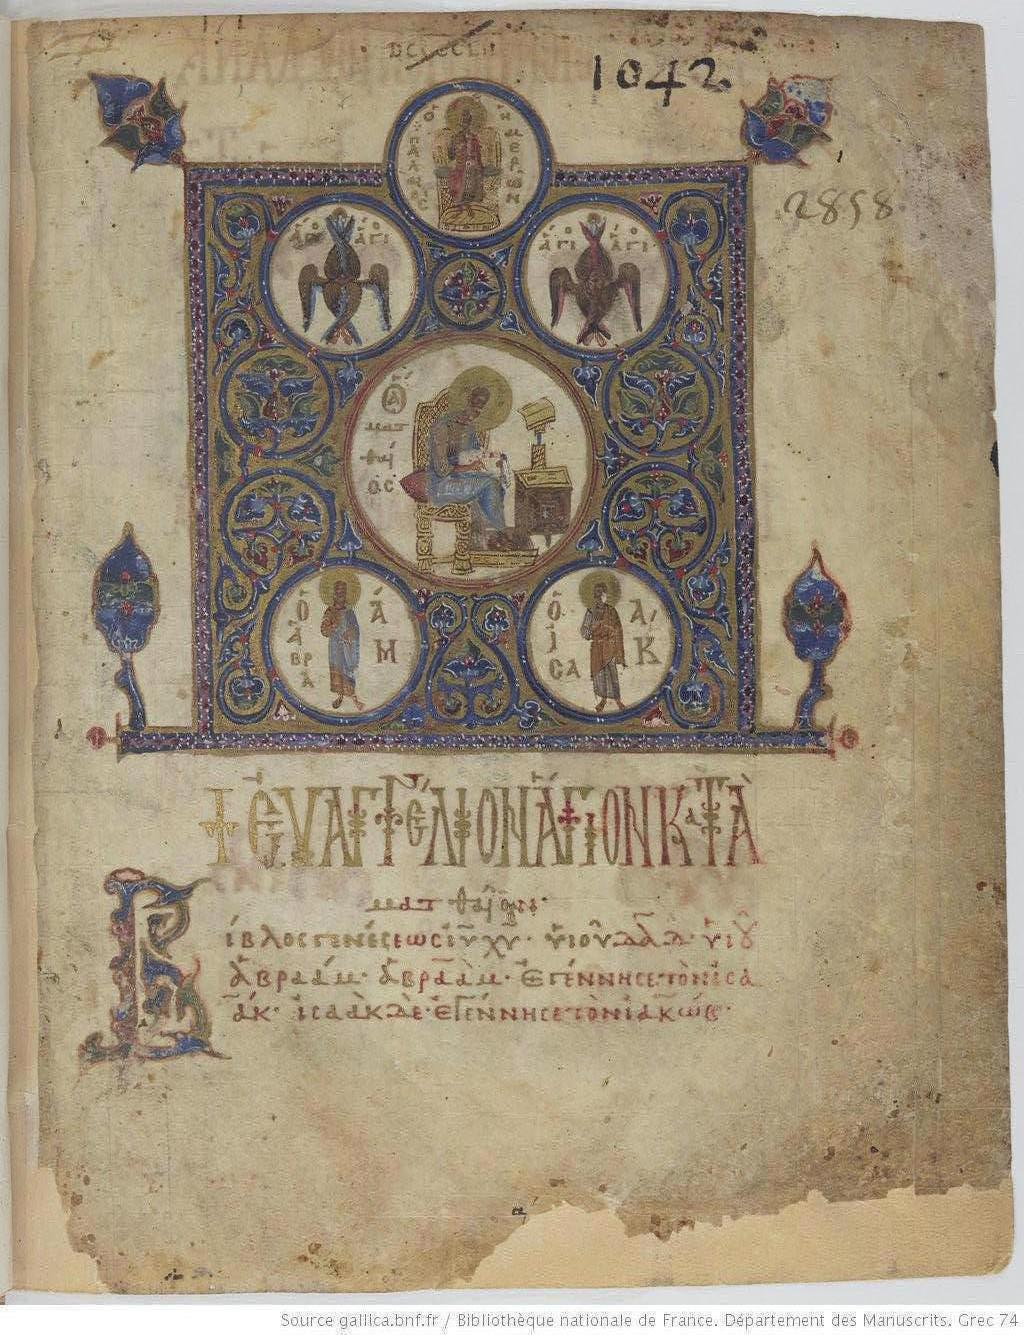 DCCCCLII
1042
2858
Ὁ ΠΑΛΑΙΟΣ ΗΜΕΡΩΝ
ἍΓΙ ἍΓΙ
Ὁ Ἅ ΜΑΤΘΑΙΟΣ
Ὁ ἈΒΡΑἉΜ
Ὁ ἸCΑΑΚ
+ ἘΥΑΓΓΈΛΙΟΝ ἍΓΙΟΝ Κ,ΤᾺ
ΜΑΤΘΑῖΟΝ·
Βίβλος γενέσεως ἰῦ χῦ· ὑιοῦ δᾱδ· ὑιοῦ
ἀβραάμ· ἀβραὰμ· ἐγέννησε τὸν ἰσα
ὰκ· ἰσαὰκ δὲ· ἐγέννησε τὸν ἰακώβ·
Source gallica.bnf.fr / Bibliothèque nationale de France. Département des Manuscrits. Grec 74